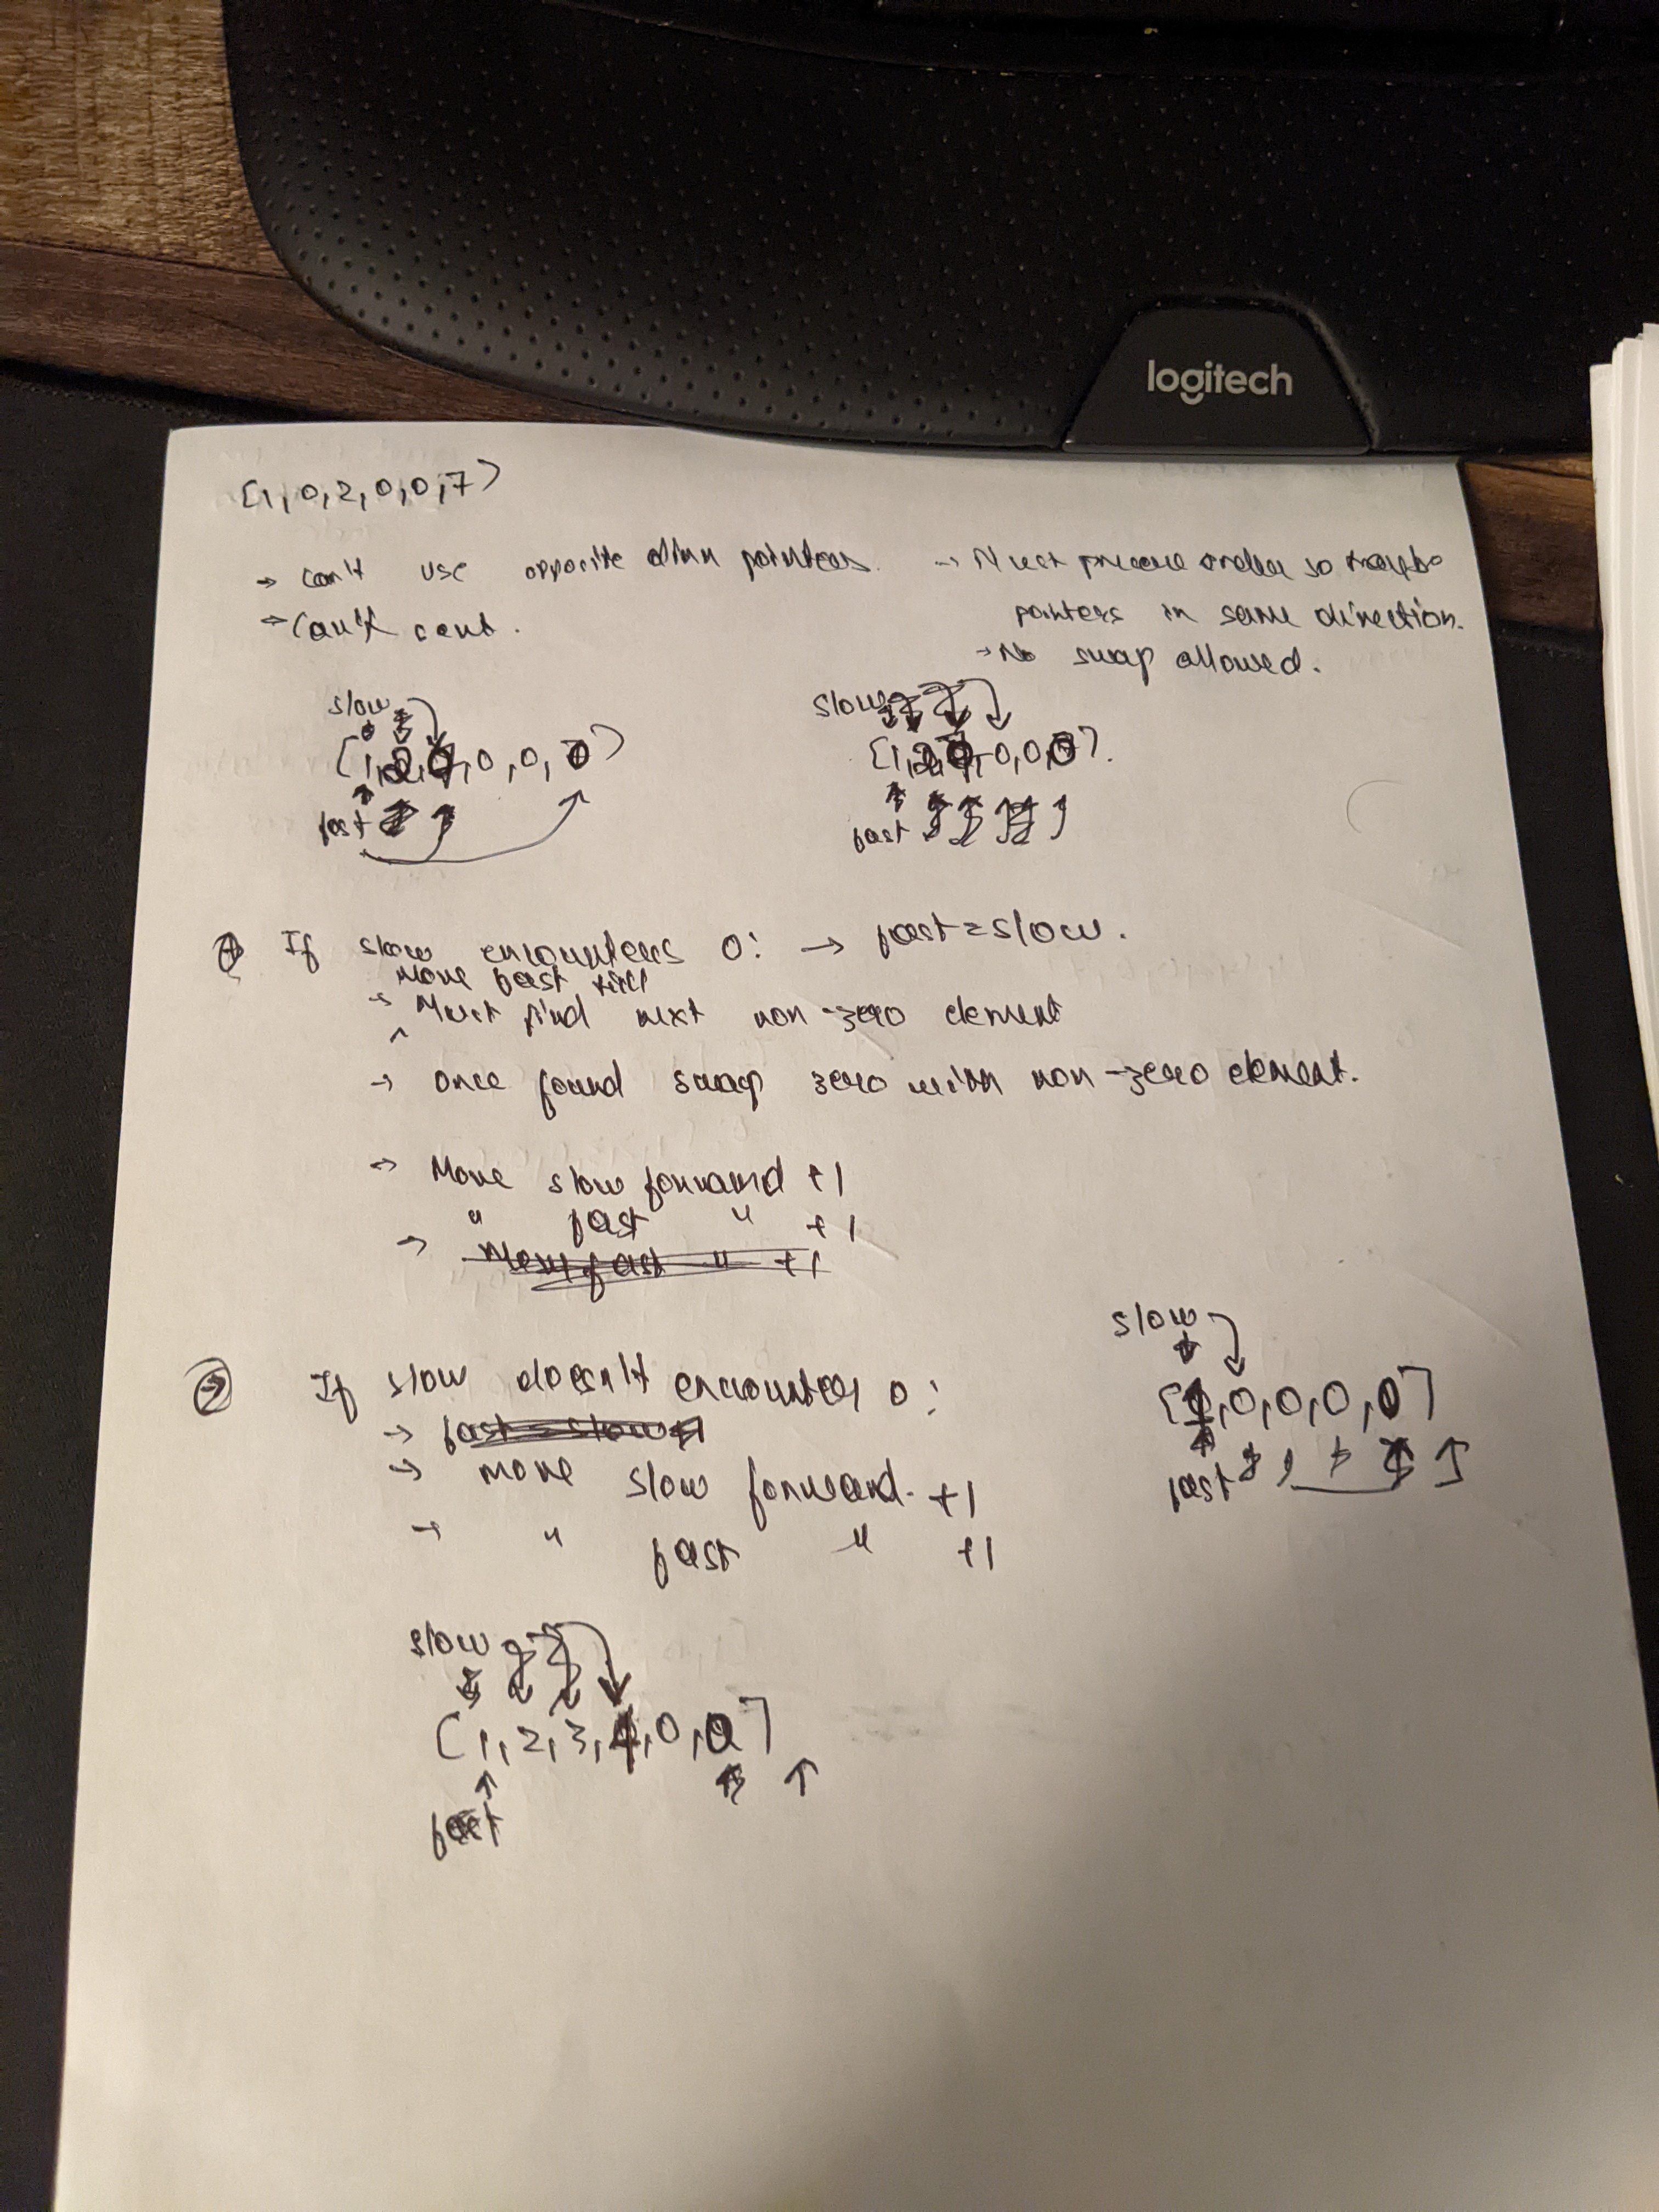 logitech
[1, 0, 2, 0, 0, 7]
→ can't use opposite dirn pointers.
→ Can't
→ Must preserve order so maybe
pointers in same direction.
→ No swap allowed.
slow
[1, 2, 7, 0, 0, 0]
fast
slow
[1, 2, 7, 0, 0, 0].
fast
① If slow encounters 0: → fast = slow.
Move fast till
→ Must find next non-zero element
→ once found swap zero with non-zero element.
→ Move slow forward +1
→ " fast " +1
Move fast " +1
② If slow doesn't encounter 0:
→ fast = slow
→ move slow forward. +1
→ " fast " +1
slow
[1, 0, 0, 0, 0]
fast
slow
[1, 2, 3, 4, 0, 0]
fast